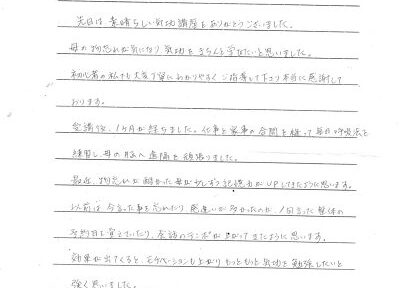 先日は素晴らしい気功講座をありがとうございました。
母の物忘れが気になり、気功をきちんと学びたいと思いました。
初心者の私にも大変丁寧にわかりやすくご指導して下さり本当に感謝して
おります。
受講後、1ヶ月が経ちました。仕事と家事の合間を縫って毎日呼吸法を
練習し、母の脳へ遠隔を頑張りました。
最近、物忘れが酷かった母が少しずつ記憶力がUPしてきたように思います。
以前は今言った事を忘れたり、勘違いが多かったのが、1日言った整体の
予約日を覚えていたり、会話のテンポが上がってきたように思います。
効果が出てくると、モチベーションも上がり、もっともっと気功を勉強したいと
強く思いました。